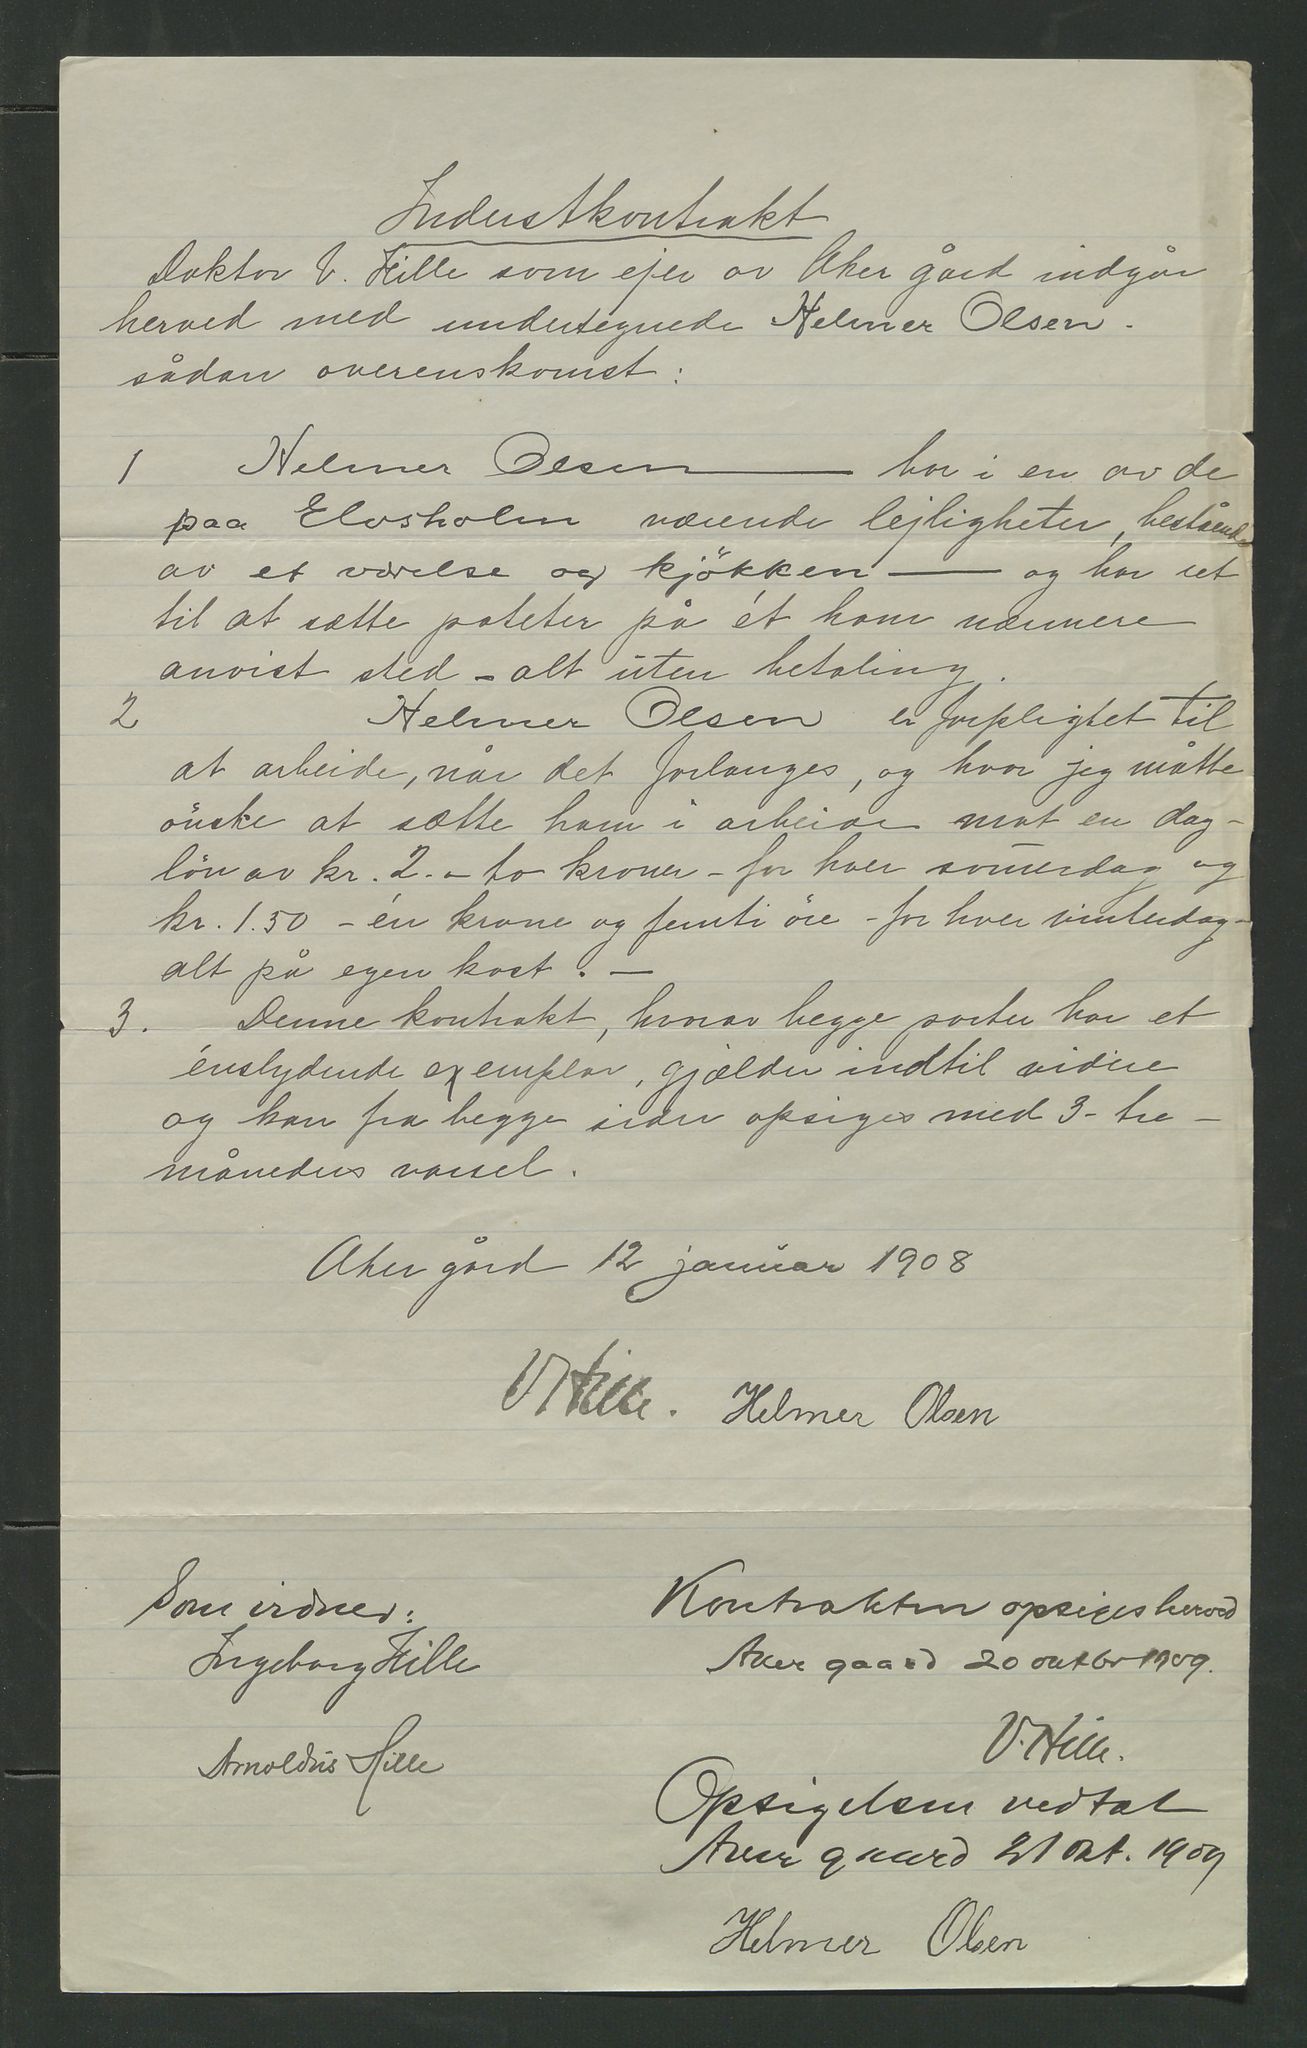 Inderstkontrakt
Doktor V. Hille som ejer av Aker gård indgår
herved med undertegnede Helmer Olsen.
sådan overenskomst:
1 Helmer Olsen bor i en av de
paa Elvsholm værende lejligheter, bestående
av et værelse og kjökken og har ret
til at sætte poteter på ét ham nærmere
anvist sted - alt uten betaling.
2 Helmer Olsen er forpligtet til
at arbeide, når det forlanges, og hvor jeg måtte
önske at sætte ham i arbeide mot en dag-
lön av kr. 2.- to kroner - for hver somerdag og
kr. 1.50 - én krone og femti öre - for hver vinterdag -
alt på egen kost. -
3. Denne kontrakt, hvorav begge parter har et
énslydende exemplar, gjælder indtil videre
og kan fra begge sider opsiges med 3 - tre -
måneders varsel.
Aker gård 12 januar 1908
VHille. Helmer Olsen
Som vidner:
Ingeborg Hille
Arnoldus Hille
Kontrakten opsiges herved
Aker gaard 20 oktbr 1909.
V. Hille.
Opsigelsen vedtat
Aker gaard 21 okt. 1909
Helmer Olsen